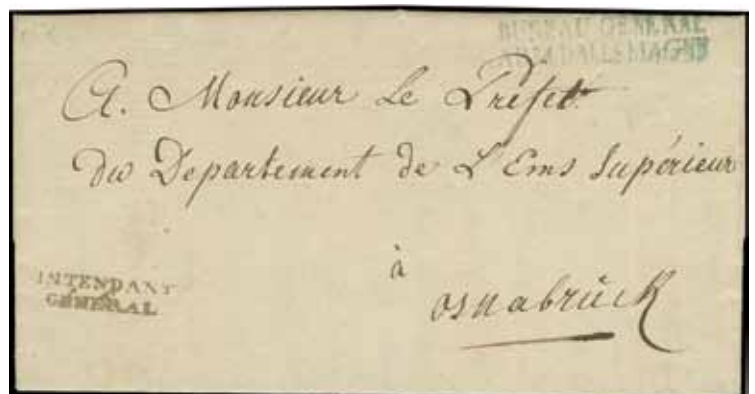 BUREAU GENERAL
ARM.DALLEMAGNE
A. Monsieur le Préfet
du Departement de L'Ems Supérieur
à
osnabrück
INTENDANT
GÉNÉRAL